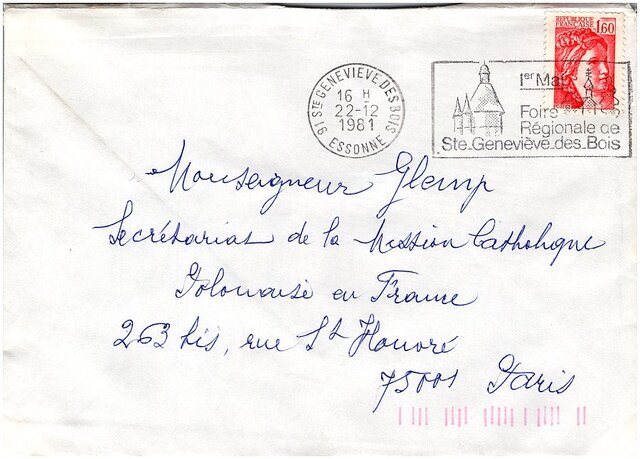 RÉPUBLIQUE FRANÇAISE
1,60
91 STE GENEVIEVE DES BOIS
16 H
22-12
1981
ESSONNE
1er Mai
Foire
Régionale de
Ste.Geneviève.des.Bois
Monseigneur Glemp
Secrétariat de la Mission Catholique
Polonaise en France
263 bis, rue St Honoré
75001 Paris